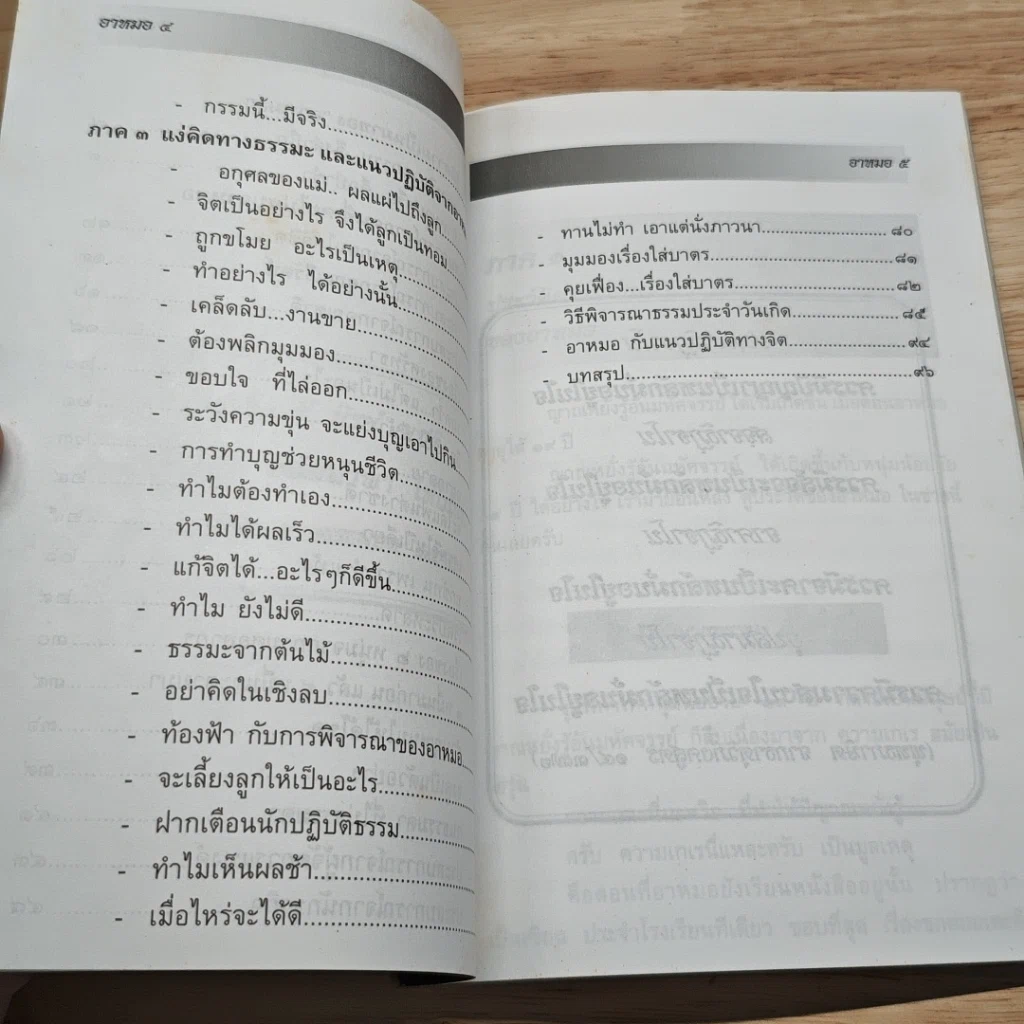 อาหมอ ๔
- กรรมนี้...มีจริง
ภาค ๓ แง่คิดทางธรรมะ และแนวปฏิบัติจาก
- อกุศลของแม่.. ผลแผ่ไปถึงลูก
- จิตเป็นอย่างไร จึงได้ลูกเป็นทอม
- ถูกขโมย อะไรเป็นเหตุ
- ทำอย่างไร ได้อย่างนั้น
- เคล็ดลับ...งานขาย
- ต้องพลิกมุมมอง
- ขอบใจ ที่ไล่ออก
- ระวังความขุ่น จะแย่งบุญเอาไปกิน
- การทำบุญช่วยหนุนชีวิต
- ทำไมต้องทำเอง
- ทำไมได้ผลเร็ว
- แก้จิตได้...อะไรๆก็ดีขึ้น
- ทำไม ยังไม่ดี
- ธรรมะจากต้นไม้
- อย่าคิดในเชิงลบ
- ท้องฟ้า กับการพิจารณาของอาหมอ
- จะเลี้ยงลูกให้เป็นอะไร
- ฝากเตือนนักปฏิบัติธรรม
- ทำไมเห็นผลช้า
- เมื่อไหร่จะได้ดี
อาหมอ ๕
- ทานไม่ทำ เอาแต่นั่งภาวนา ๘๐
- มุมมองเรื่องใส่บาตร ๘๑
- คุยเฟื่อง...เรื่องใส่บาตร ๘๒
- วิธีพิจารณาธรรมประจำวันเกิด ๘๕
- อาหมอ กับแนวปฏิบัติทางจิต ๙๔
- บทสรุป ๙๖